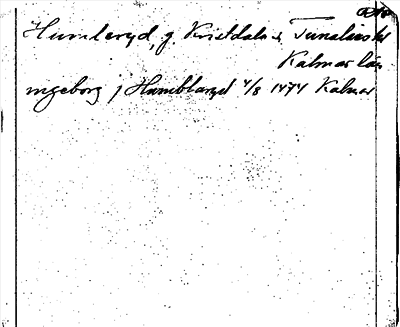 Humleryd, g. Kristdala s, Tunaläns hd
Kalmar län
ingeborg j Humblaryd 4/8 1474 Kalmar